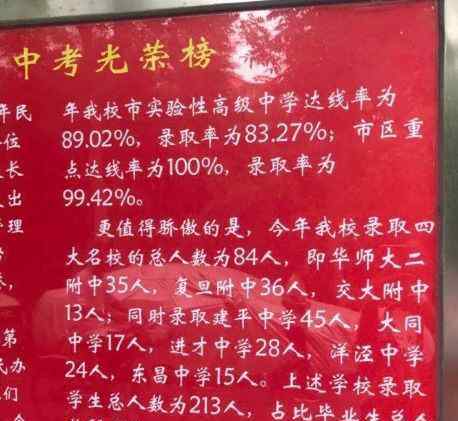 中考光荣榜
年民
位
长
出
管理
第
民办
们
年我校市实验性高级中学达线率为
89.02%，录取率为83.27%；市区重
点达线率为100%，录取率为
99.42%。
更值得骄傲的是，今年我校录取四
大名校的总人数为84人，即华师大二
附中35人，复旦附中36人，交大附中
13人；同时录取建平中学45人，大同
中学17人，进才中学28人，洋泾中学
24人，东昌中学15人。上述学校录取
学生总人数为213人，占比毕业生总人